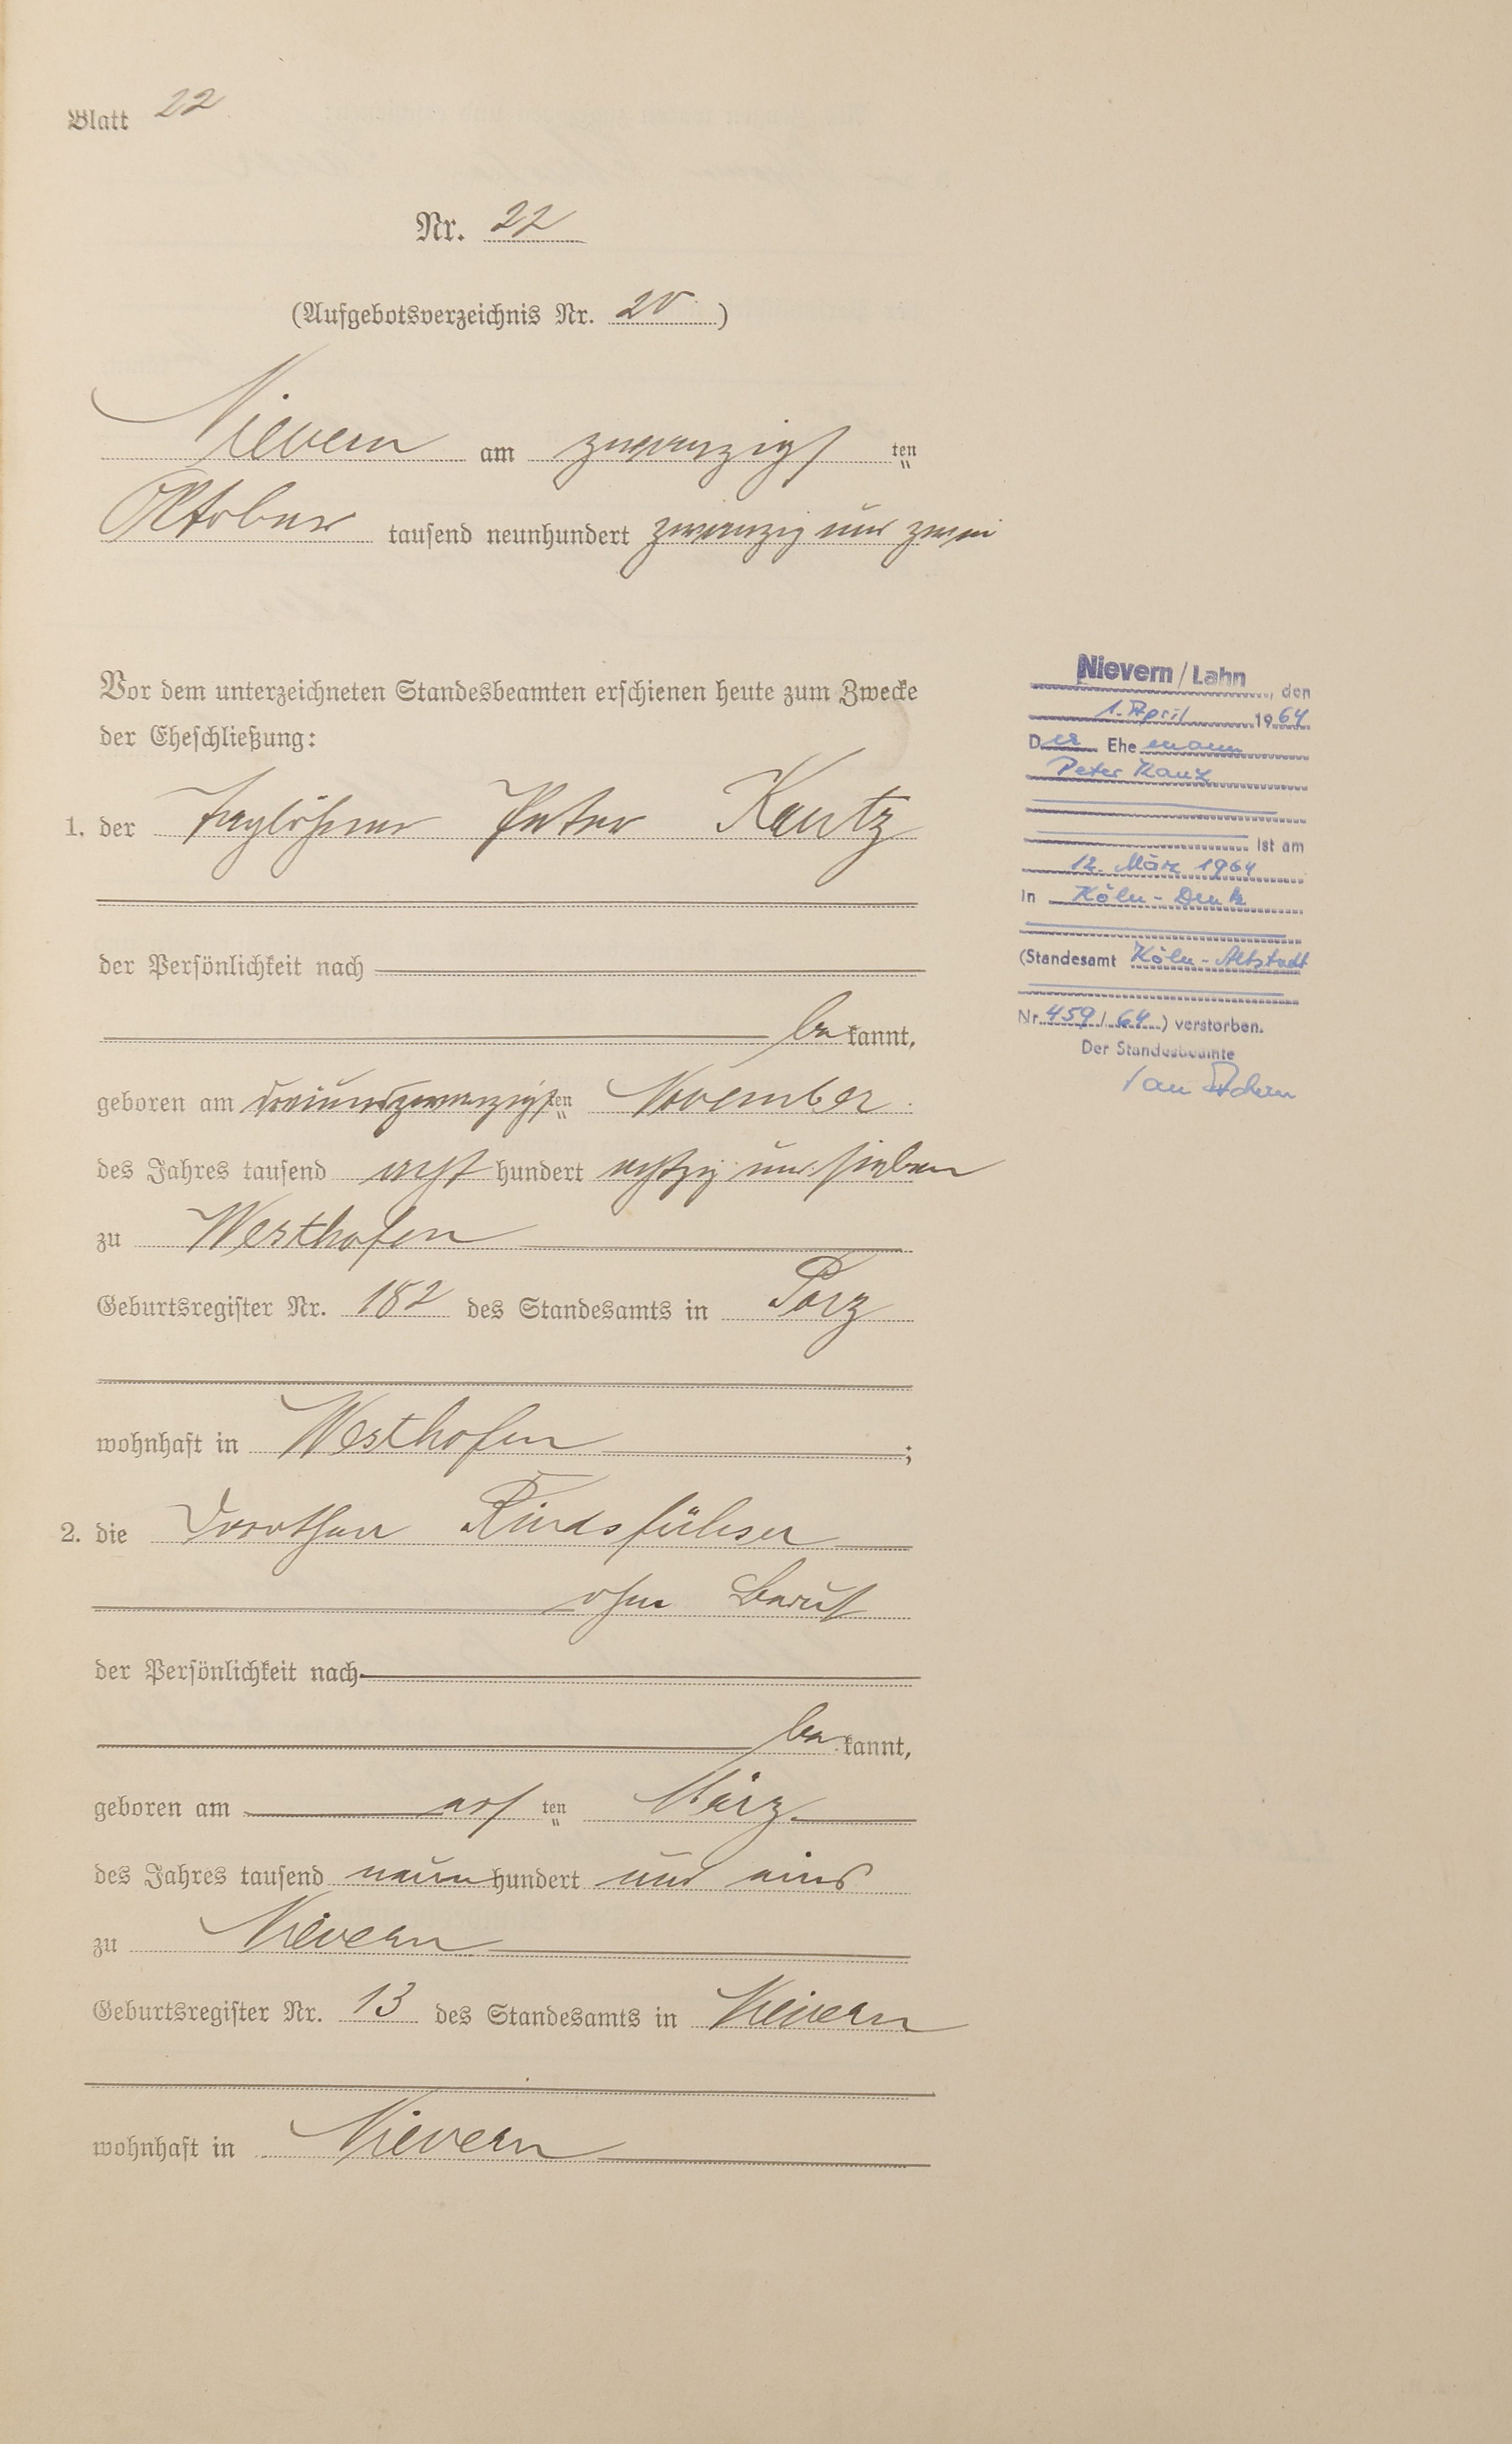 Blatt 22
Nr. 22
(Aufgebotsverzeichnis Nr. 20)
Nievern am zwanzigsten
Oktober tausend neunhundert zwanzig und zwei
Vor dem unterzeichneten Standesbeamten erschienen heute zum Zwecke
der Eheschließung:
1. der Taglöhner Peter Kautz
der Persönlichkeit nach
bekannt,
geboren am dreiundzwanzigsten November
des Jahres tausend acht hundert achtzig und sieben
zu Westhofen
Geburtsregister Nr. 182 des Standesamts in Porz
wohnhaft in Westhofen;
2. die Dorothea Rindsfüßer
ohne Beruf
der Persönlichkeit nach
bekannt,
geboren am ersten März
des Jahres tausend neun hundert und eins
zu Nievern
Geburtsregister Nr. 13 des Standesamts in Nievern
wohnhaft in Nievern
Nievern/Lahn, den
1. April 1964
Der Ehemann
Peter Kautz
ist am
12. März 1964
in Köln-Deutz
(Standesamt Köln-Altstadt
Nr. 459/64) verstorben.
Der Standesbeamte